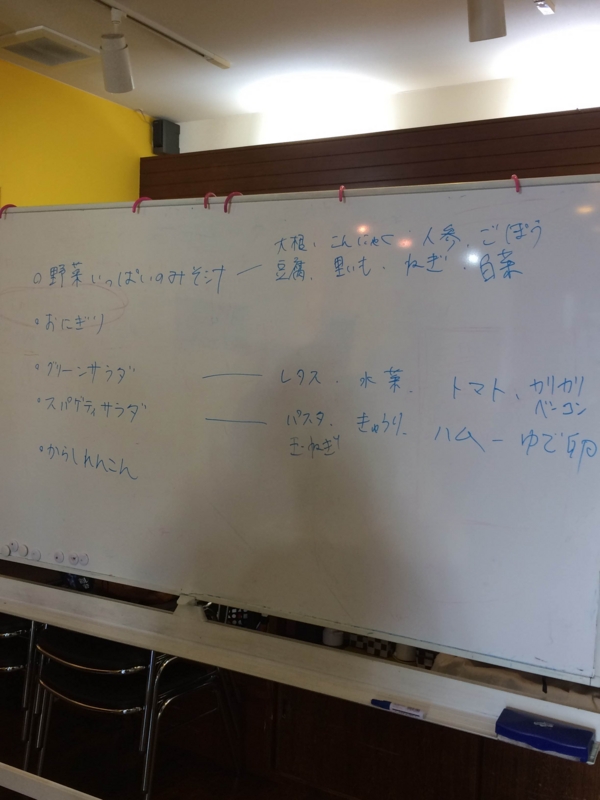 大根、こんにゃく、人参、ごぼう
○野菜いっぱいのみそ汁 — 豆腐、里いも、ねぎ、白菜
○おにぎり
○グリーンサラダ — レタス、水菜、トマト、カリカリ
ベーコン
○スパゲティサラダ — パスタ、きゅうり、ハム–ゆで卵
玉ねぎ
○からしれんこん